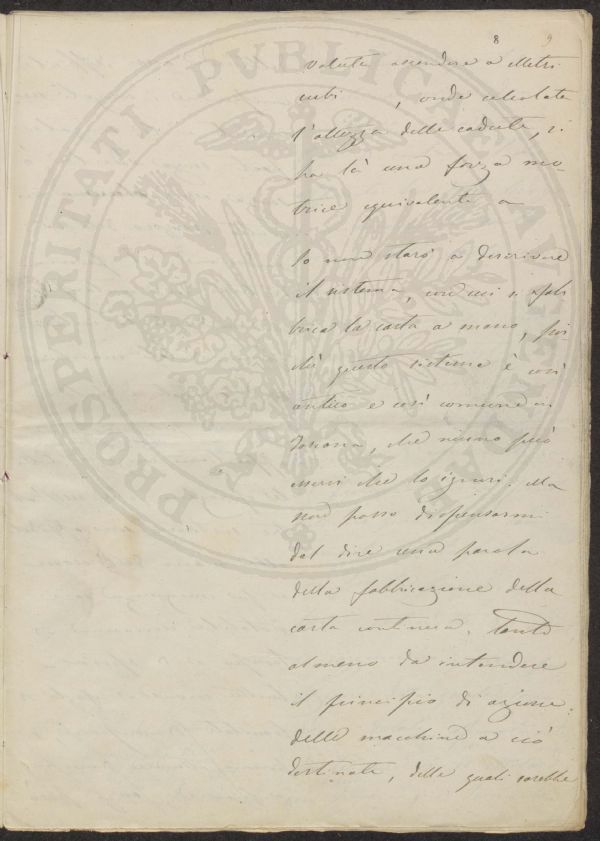 8 9
valuta ascendere a Metri
cubi , onde calcolata
l'altezza delle cadute, si
ha là una forza mo-
trice equivalente a
Io non starò a descrivere
il sistema, con cui si fab
brica la carta a mano, poi
chè questo sistema è così
antico e così comune in
Toscana, che niuno può
esservi che lo ignori. Ma
non posso dispensarmi
dal dire una parola
della fabbricazione della
carta continua, tanto
almeno da intendere
il principio di azione
delle macchine a ciò
destinate, delle quali sarebbe
PROSPERITATI PVBLICAE AVGENDAE